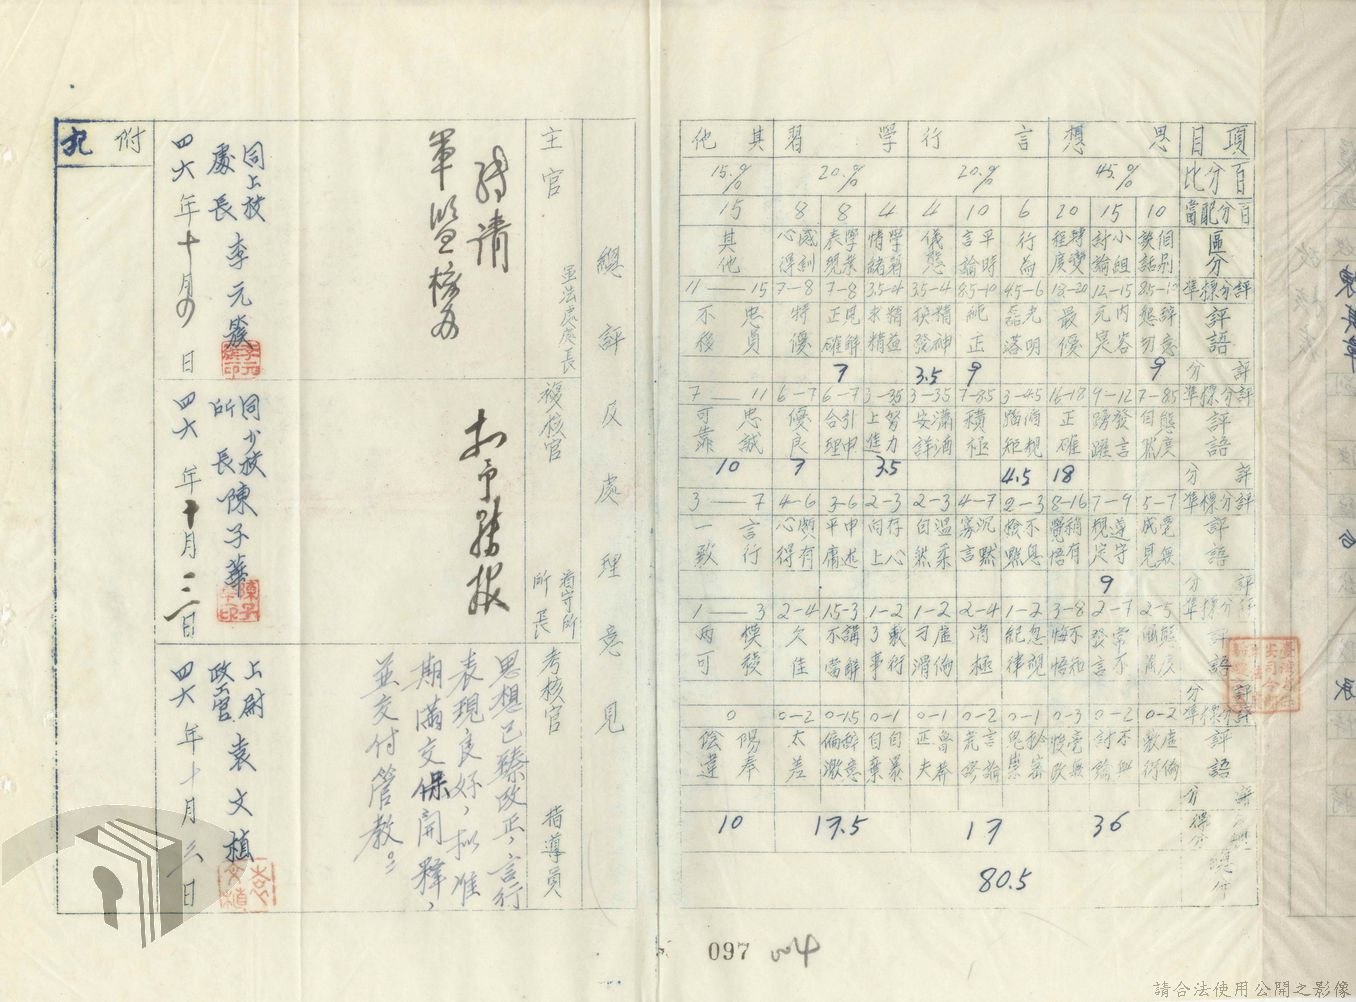 項目
思想
言行
學習
其他
百分比
45.%
20.%
20.%
15.%
百分配當
10
15
20
6
10
4
4
8
8
15
區分
個別談話
小組討論
轉變程度
行為
平時言論
儀態
學習情緒
學業表現
感訓心得
其他
評分標準
8.5-10
12-15
18-20
4.5-6
8.5-10
3.5-4
3.5-4
7-8
7-8
11—15
評語
辭意懇切
內容充實
最優
光明磊落
純正
精神
精益求精
見解正確
特優
忠貞不
評分
9
9
3.5
7
評分標準
7-8.5
9-12
16-18
3-4.5
7-8.5
3-3.5
3-3.5
6-7
6-7
7—11
評語
態度自然
發言踴躍
正確
循規蹈矩
積極
瀟洒安詳
努力上進
引申合理
優良
忠誠可靠
評分
18
4.5
3.5
7
10
評分標準
5-7
7-9
8-16
2-3
4-7
2-3
2-3
3-6
4-6
3—7
評語
毫無成見
遵守規定
稍有覺悟
沉默寡言
溫柔自然
存心向上
申述平庸
頗有心得
言行一致
評分
9
評分標準
2-5
2-7
3-8
1-2
2-4
1-2
1-2
1.5-3
2-4
1—3
評語
常不發言
忽視紀律
消極
敷衍了事
講解不當
欠佳
模稜兩可
評分
評分標準
0-2
0-2
0-3
0-1
0-2
0-1
0-1
0-1.5
0-2
0
評語
虛偽敷衍
言論荒謬
魯莽
自暴自棄
辭意偏激
太差
陽奉陰違
評分
得分
36
17
17.5
10
80.5
總評及處理意見
主官
軍法處處長
轉請
軍監核办
同上校
處長李元簇
四六年十月 日
複核官
看守所所長
同少校
所長陳子華
四六年十月三日
考核官
指導員
思想已臻改正,言行
表現良好,拟准
期滿交保開釋,
並交付管教。
上尉
政工官袁文植
四六年十月 日
附記
097
004
請合法使用公開之影像